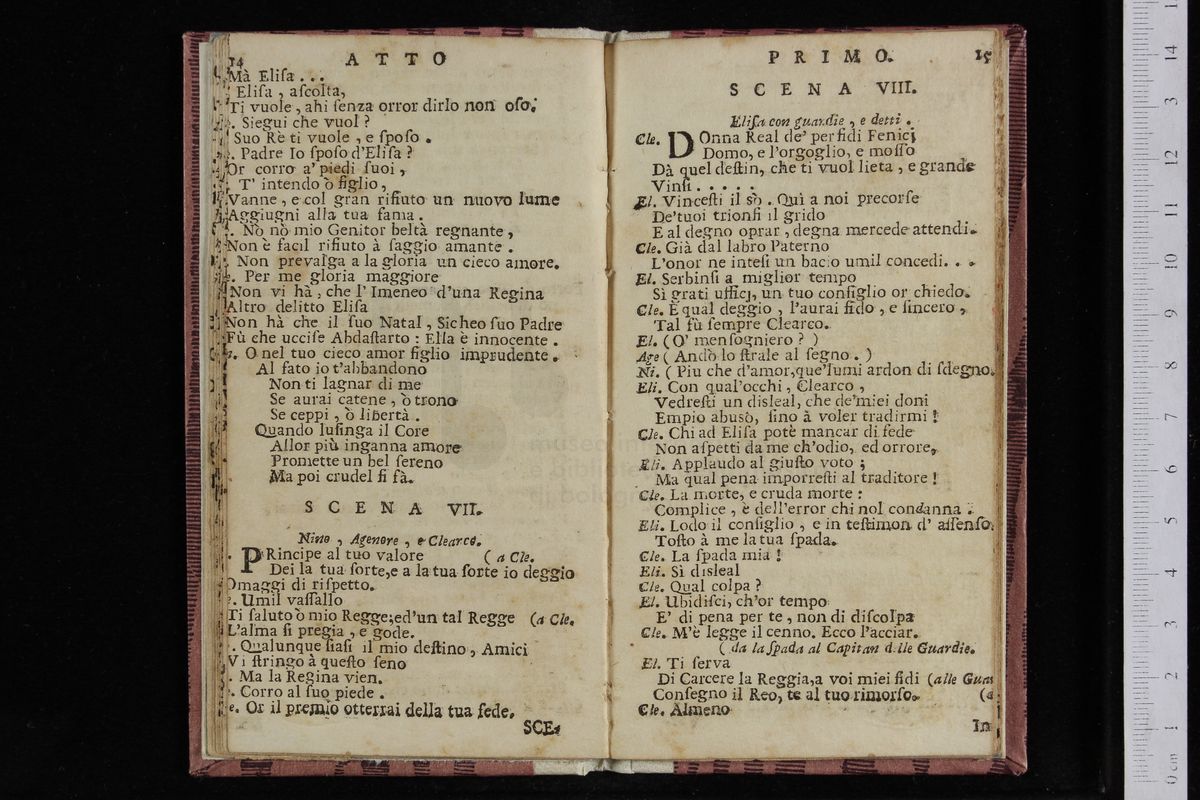 14 ATTO
Mà Eliſa . . .
Eliſa , aſcolta,
Ti vuole , ahi ſenza orror dirlo non oſo.
. Siegui che vuol ?
Suo Rè ti vuole , e ſpoſo .
. Padre Io ſpoſo d'Eliſa ?
Or corro a' piedi ſuoi ,
T' intendo ò figlio,
Vanne , e col gran rifiuto un nuovo lume
Aggiugni alla tua fama .
. Nò nò mio Genitor beltà regnante ,
Non è facil rifiuto à ſaggio amante .
. Non prevalga a la gloria un cieco amore.
. Per me gloria maggiore
Non vi hà , che l' Imeneo d'una Regina
Altro delitto Eliſa
Non hà che il ſuo Natal , Sicheo ſuo Padre
Fù che ucciſe Abdaſtarto : Ella è innocente .
. O nel tuo cieco amor figlio imprudente .
Al fato io t'abbandono
Non ti lagnar di me
Se aurai catene , ò trono
Se ceppi , ò libertà .
Quando luſinga il Core
Allor più inganna amore
Promette un bel ſereno
Ma poi crudel ſi fà.
SCENA VII.
Nino , Agenore , e Clearco.
. PRincipe al tuo valore ( a Cle.
Dei la tua ſorte,e a la tua ſorte io deggio
Omaggi di riſpetto.
. Umil vaſſallo
Ti ſaluto ò mio Regge;ed'un tal Regge (a Cle.
L'alma ſi pregia , e gode.
. Qualunque ſiaſi il mio deſtino , Amici
Vi ſtringo à queſto ſeno
. Ma la Regina vien.
. Corro al ſuo piede .
e. Or il premio otterrai della tua fede.
SCE-
PRIMO. 15
SCENA VIII.
Eliſa con guardie , e detti .
Cle. DOnna Real de' perfidi Fenicj
Domo, e l'orgoglio, e moſſo
Dà quel deſtin, che ti vuol lieta , e grande
Vinſi . . . . .
El. Vinceſti il sò . Quì a noi precorſe
De'tuoi trionfi il grido
E al degno oprar , degna mercede attendi.
Cle. Già dal labro Paterno
L'onor ne inteſi un bacio umil concedi. . .
El. Serbinſi a miglior tempo
Sì grati ufficj, un tuo conſiglio or chiedo.
Cle. E qual deggio , l'aurai fido , e ſincero ,
Tal fù ſempre Clearco.
El. ( O' menſogniero ? )
Age ( Andò lo ſtrale al ſegno . )
Ni. ( Piu che d'amor,que'lumi ardon di ſdegno.
Eli. Con qual'occhi , Clearco ,
Vedreſti un disleal, che de'miei doni
Empio abusò, ſino à voler tradirmi !
Cle. Chi ad Eliſa potè mancar di fede
Non aſpetti da me ch'odio, ed orrore,
Eli. Applaudo al giuſto voto ;
Ma qual pena imporreſti al traditore !
Cle. La morte, e cruda morte :
Complice , è dell'error chi nol condanna .
Eli. Lodo il conſiglio , e in teſtimon d' aſſenſo.
Toſto à me la tua ſpada.
Cle. La ſpada mia !
Eli. Sì disleal
Cle. Qual colpa ?
El. Ubidiſci, ch'or tempo
E' di pena per te , non di diſcolpa
Cle. M'è legge il cenno. Ecco l'acciar.
( da la ſpada al Capitan delle Guardie.
El. Ti ſerva
Di Carcere la Reggia,a voi miei fidi (alle Guar
Conſegno il Reo, te al tuo rimorſo. (a
Cle. Almeno
In